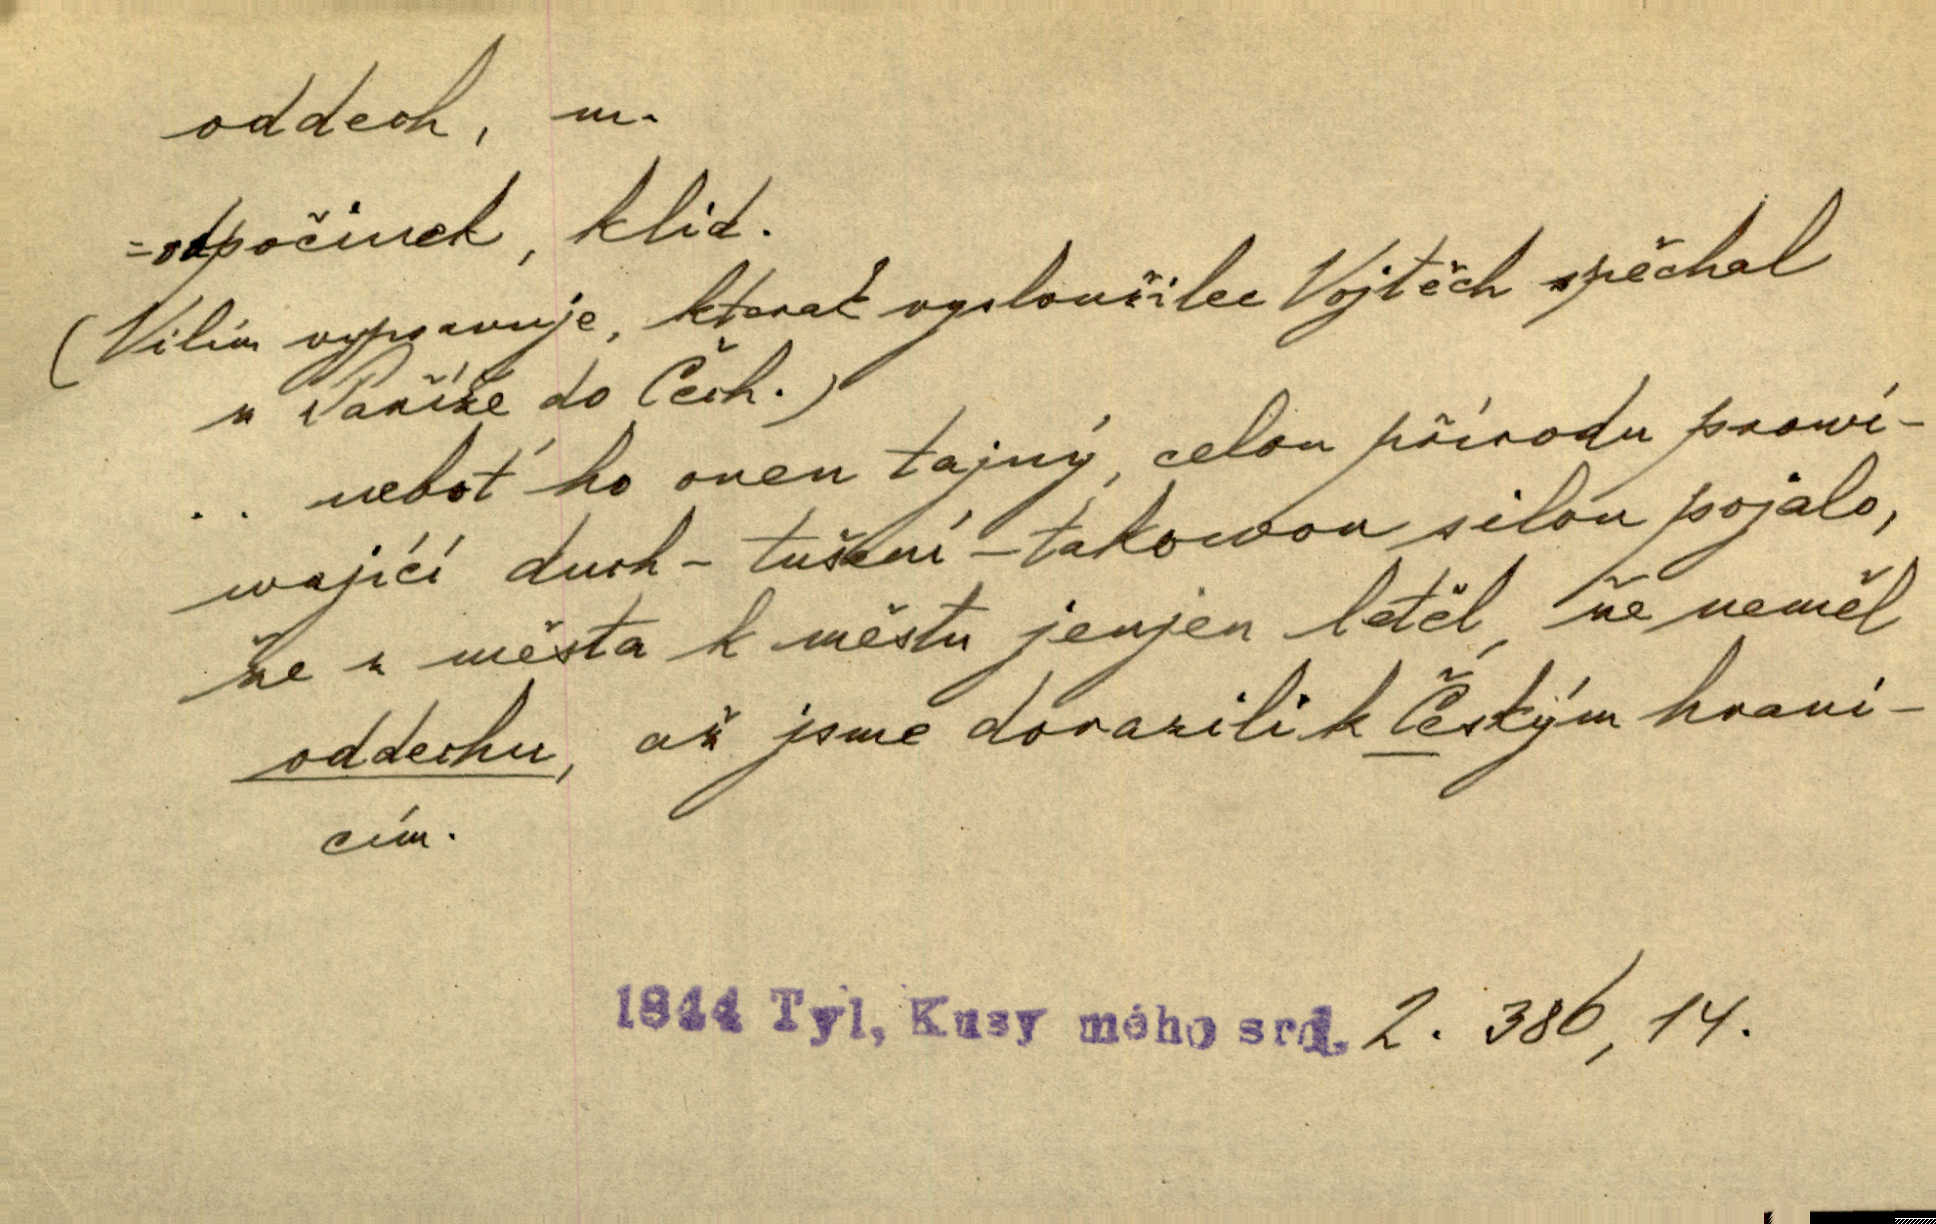 oddech, m.
=odpočinek, klid.
(Vilím vypravuje, kterak vysloužilec Vojtěch spěchal
z Paříže do Čech.)
.. neboť ho onen tajný, celou přírodu prowí-
wající duch - tušení - takowou silou pojalo,
že z města k městu jenjen letěl, že neměl
oddechu, až jsme dorazili k Českým hrani-
cím.
1844 Tyl, Kusy mého srd. 2. 386, 14.